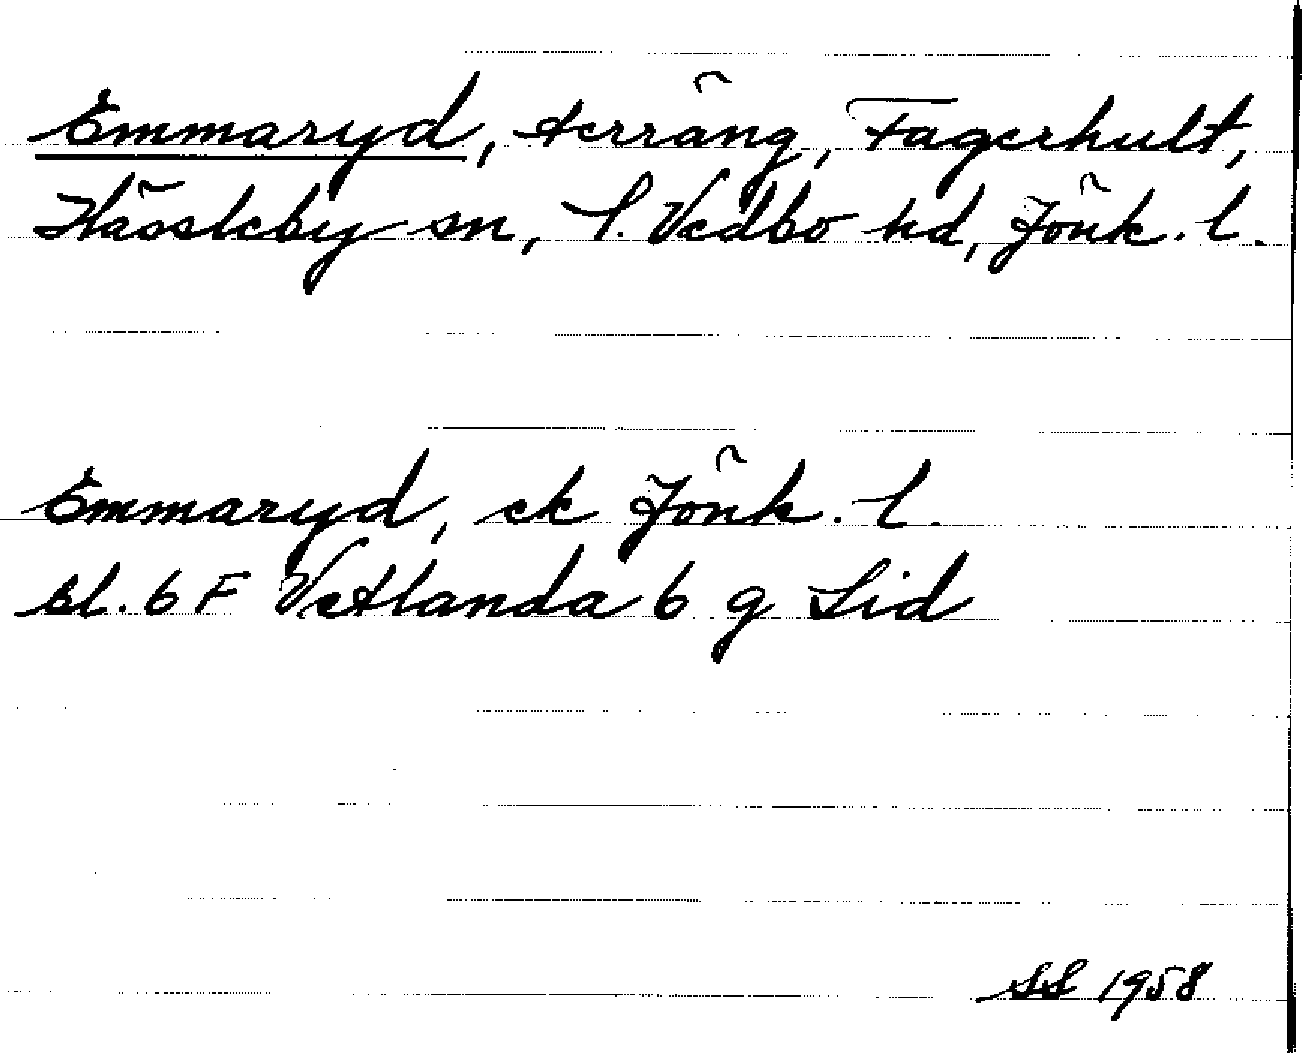 Emmaryd, terräng, Fagerhult,
Hässleby sn, S. Vedbo hd, Jönk. l.
Emmaryd, ek Jönk. l.
bl. 6 F Vetlanda 6 g Sid
SS 1958